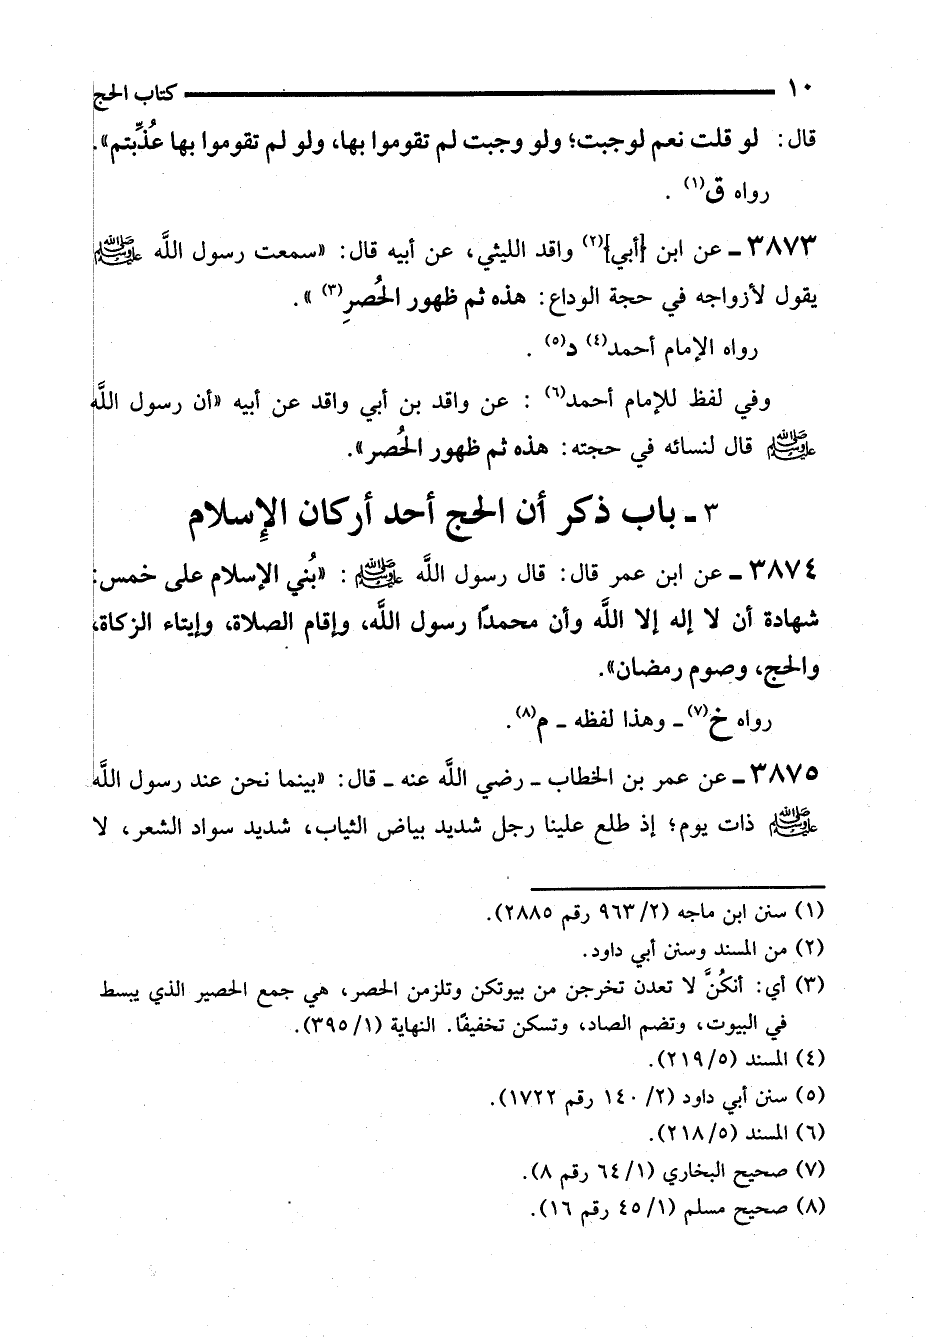 ١٠ كتاب الحج
قال: لو قلت نعم لوجبت؛ ولو وجبت لم تقوموا بها، ولو لم تقوموا بها عُذِّبتم».
رواه ق(١) .
٣٨٧٣ ـ عن ابن [أبي](٢) واقد الليثي، عن أبيه قال: «سمعت رسول اللَّه ﷺ
يقول لأزواجه في حجة الوداع: هذه ثم ظهور الحُصرِ(٣) ».
رواه الإمام أحمد(٤) د(٥) .
وفي لفظ للإمام أحمد(٦) : عن واقد بن أبي واقد عن أبيه «أن رسول اللَّه
ﷺ قال لنسائه في حجته: هذه ثم ظهور الحُصر».
٣ ـ باب ذكر أن الحج أحد أركان الإِسلام
٣٨٧٤ ـ عن ابن عمر قال: قال رسول اللَّه ﷺ : «بُني الإسلام على خمس:
شهادة أن لا إله إلا اللَّه وأن محمدًا رسول اللَّه، وإقام الصلاة، وإيتاء الزكاة،
والحج، وصوم رمضان».
رواه خ(٧) ـ وهذا لفظه ـ م(٨).
٣٨٧٥ ـ عن عمر بن الخطاب ـ رضي اللَّه عنه ـ قال: «بينما نحن عند رسول اللَّه
ﷺ ذات يوم؛ إذ طلع علينا رجل شديد بياض الثياب، شديد سواد الشعر، لا
(١) سنن ابن ماجه (٢/ ٩٦٣ رقم ٢٨٨٥).
(٢) من المسند وسنن أبي داود.
(٣) أي: أنكُنَّ لا تعدن تخرجن من بيوتكن وتلزمن الحصر، هي جمع الحصير الذي يبسط
في البيوت، وتضم الصاد، وتسكن تخفيفًا. النهاية (١/ ٣٩٥).
(٤) المسند (٥/ ٢١٩).
(٥) سنن أبي داود (٢/ ١٤٠ رقم ١٧٢٢).
(٦) المسند (٥/ ٢١٨).
(٧) صحيح البخاري (١/ ٦٤ رقم ٨).
(٨) صحيح مسلم (١/ ٤٥ رقم ١٦).